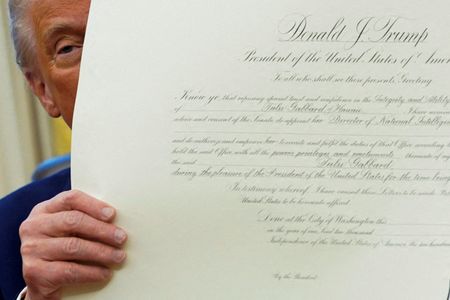 Donald J. Trump
President of the United States of Amer
To all who shall see these presents, Greeting
Know ye, that reposing special trust and confidence in the Integrity and Ability
of Tulsi Gabbard of Hawaii I have
advice and consent of the Senate, do appoint her Director of National Intelligenc
and do authorize and empower her to execute and fulfil the duties of that Office according to
hold the said Office, with all the powers, privileges, and emoluments thereunto of
the said Tulsi Gabbard,
during the pleasure of the President of the United States for the time being
In testimony whereof, I have caused these Letters to be made
United States to be hereunto affixed.
Done at the City of Washington this
in the year of our Lord two thousand
Independence of the United States of America the two hundred
By the President: